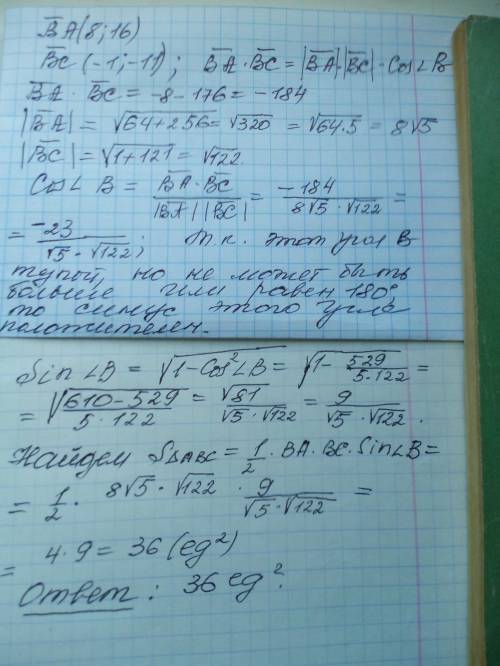 B̅A̅(8; 16)
B̅C̅(-1; -11); B̅A̅ · B̅C̅ = |B̅A̅|·|B̅C̅|·Cos∠B
B̅A̅ · B̅C̅ = -8 - 176 = -184
|B̅A̅| = √64+256 = √320 = √64·5 = 8√5
|B̅C̅| = √1+121 = √122
Cos∠B = B̅A̅·B̅C̅/|B̅A̅||B̅C̅| = -184/8√5·√122 =
= -23/√5·√122; т.к. этот угол B
тупой, но не может быть
больше или равен 180°,
то синус этого угла
положителен.
Sin∠B = √1-Cos²∠B = √1-529/5·122 =
= √610-529/5·122 = √81/√5·√122 = 9/√5·√122.
Найдем S△ABC = 1/2·BA·BC·Sin∠B =
= 1/2 · 8√5·√122 · 9/√5·√122 =
= 4·9 = 36 (ед²)
Ответ: 36 ед².